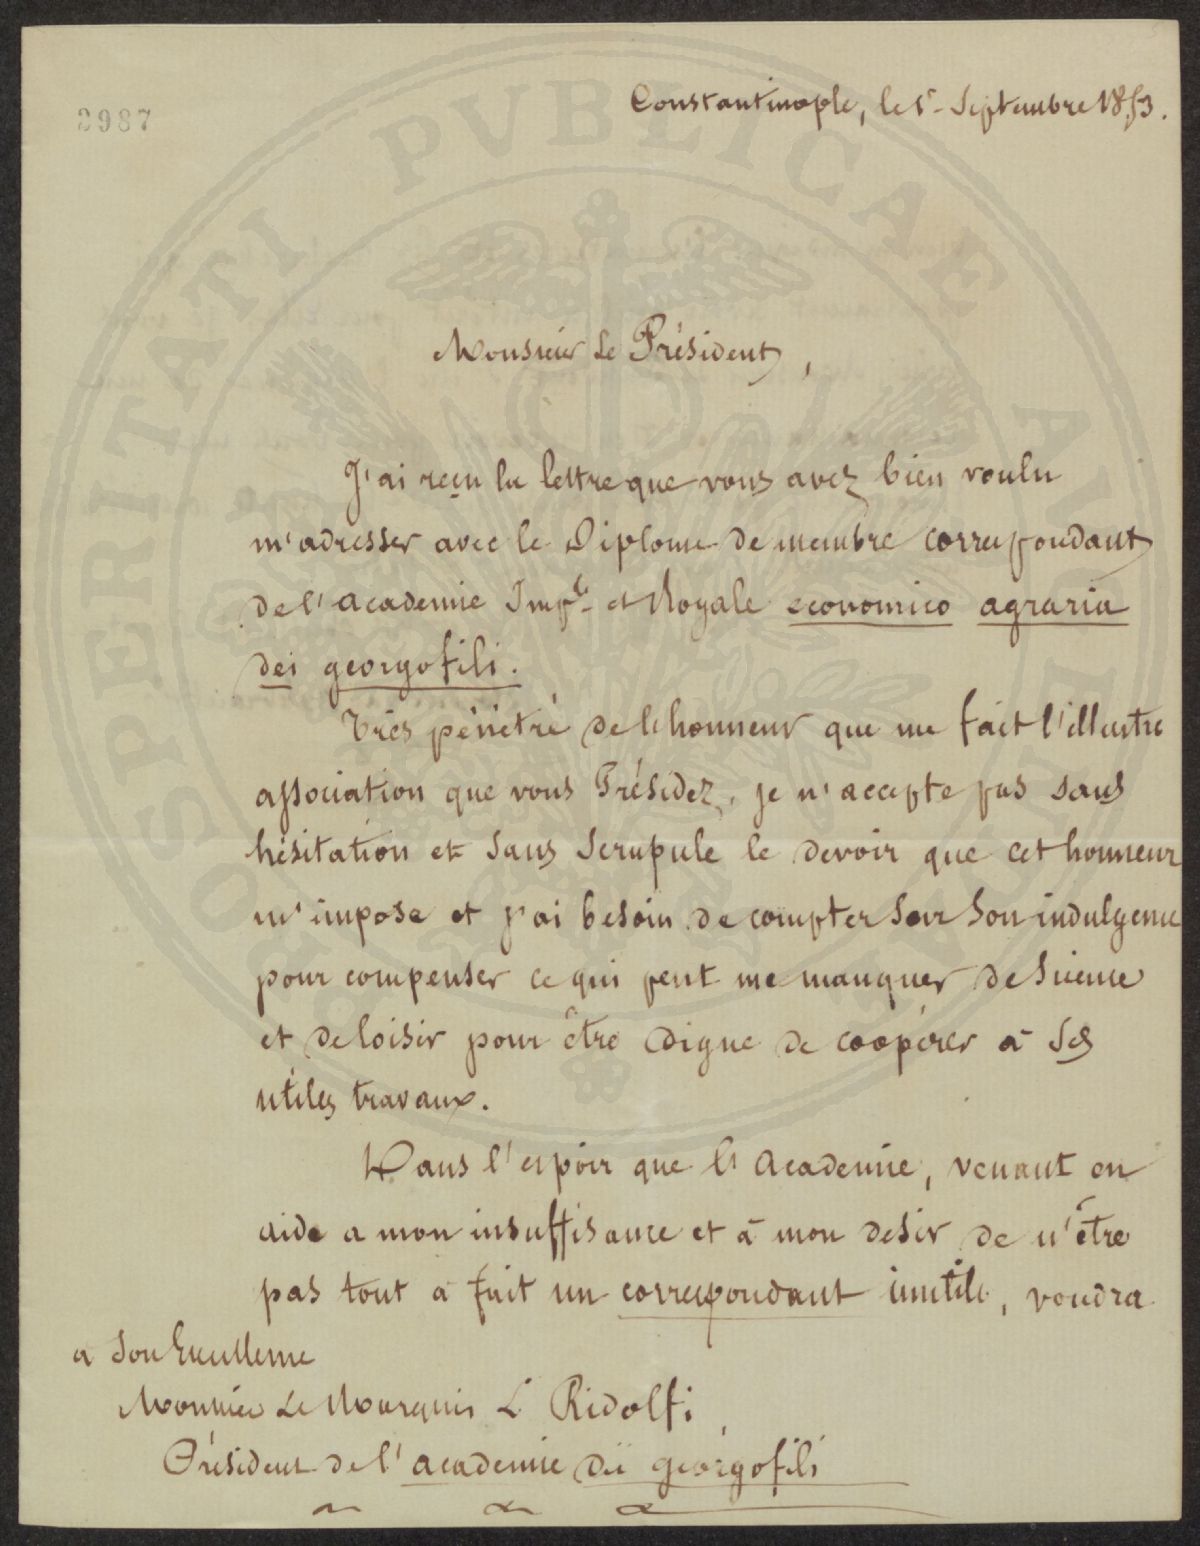 2987
Constantinople, le 1r Septembre 1853.
Monsieur Le Président,
J'ai reçu la lettre que vous avez bien voulu
m'adresser avec le Diplome de membre correspondant
de l'académie Imple et Royale economico agraria
dei georgofili.
Très pénétré de l'honneur que me fait l'illustre
association que vous Présidez, je n'accepte pas sans
hésitation et sans scrupule le devoir que cet honneur
m'impose et j'ai besoin de compter sur son indulgence
pour compenser ce qui peut me manquer de science
et de loisir pour être digne de coopérer à ses
utiles travaux.
Dans l'espoir que l'Academie, venant en
aide a mon insuffisance et à mon desir de n'être
pas tout a fait un correspondant inutile, voudra
a Son Excellence
Monsieur Le Marquis L. Ridolfi,
Président de l'académie dei georgofili
PROSPERITATI PVBLICAE AVGENDAE